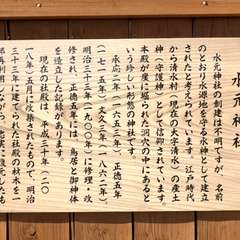 水元神社
水元神社の創建は不明ですが、名前
のとおり水源地を守る水神として建立
されたと考えられています。江戸時代
から清水村(現在の大字清水)の産土
神(守護神)として信仰されています。
本殿が崖に掘られた洞穴の中にあると
いう珍しい形態の神社です。
承応二年(一六五三年)、正徳五年
(一七一五年)、文久二年(一八六二年)、
明治三十三年(一九〇〇年)に修理・改
修され、正徳五年には鳥居と御神体
を造立した記録があります。
現在の社殿は、平成三十年(二〇
一八年)五月に改築されたもので、明治
三十三年に建てられた社殿の材木を一
部再利用しながら、忠実に復元したも